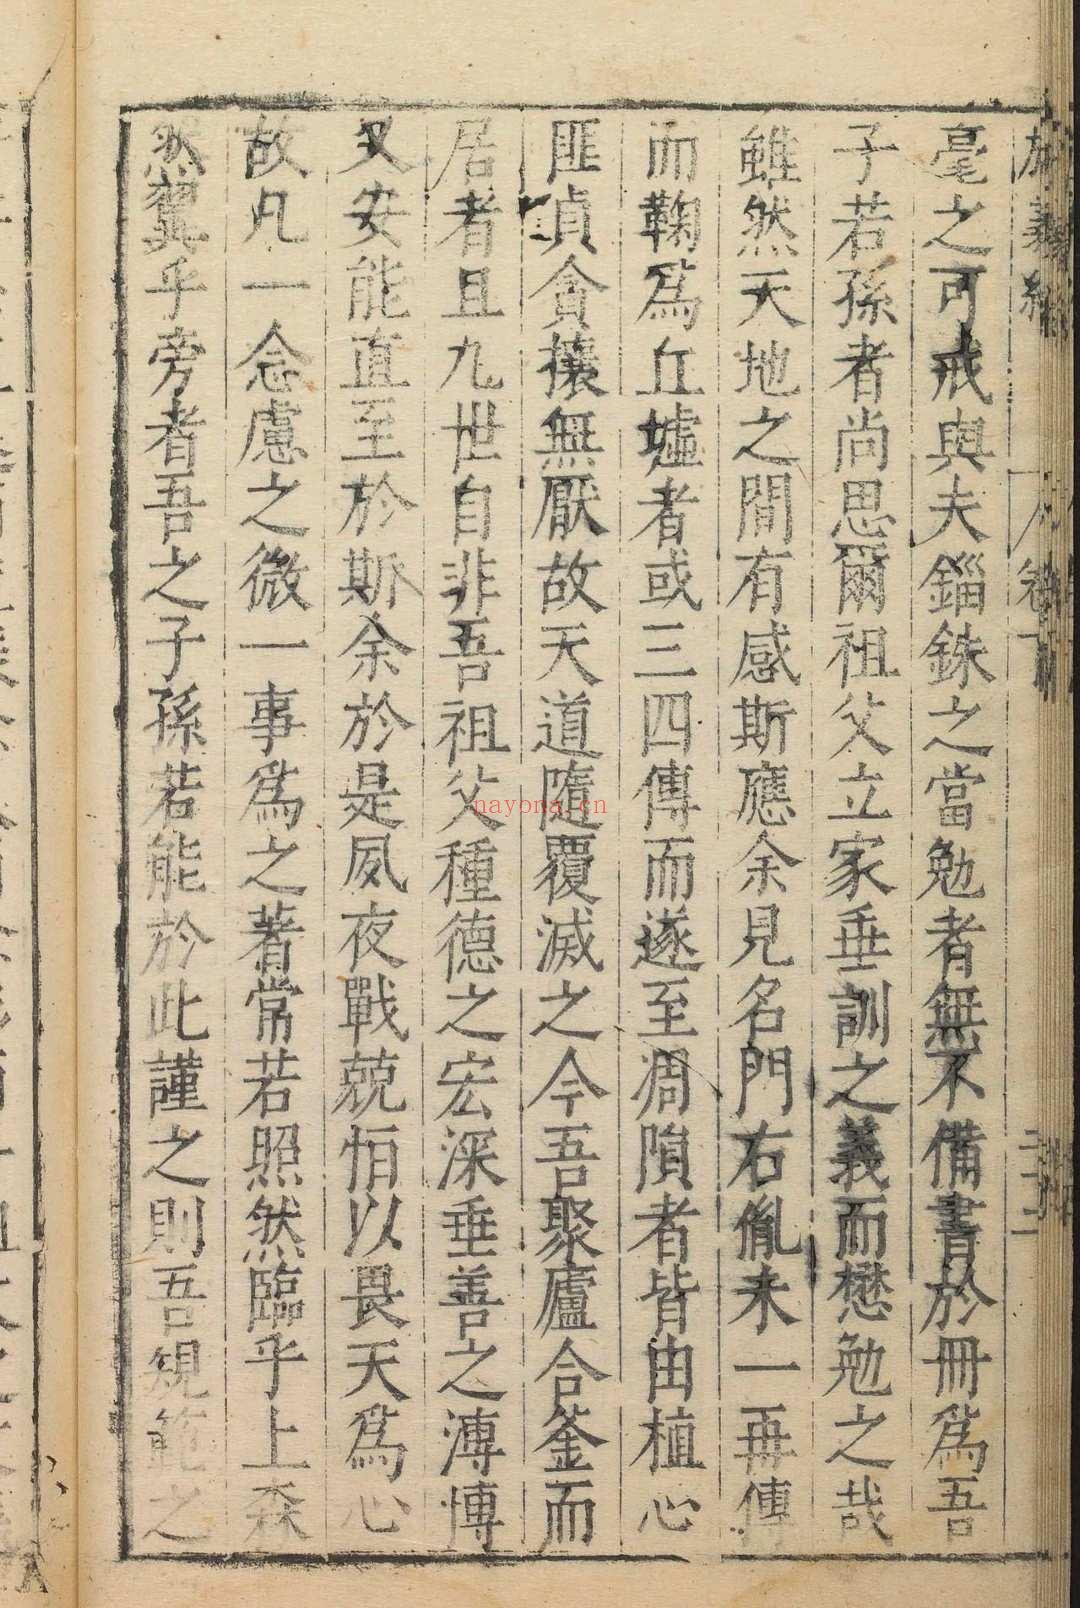 毫之可戒與夫錙銖之當勉者無不備書於冊爲吾
子若孫者尚思爾祖父立家垂訓之義而懋勉之哉
雖然天地之間有感斯應余見名門右胤未一再傳
而鞠爲丘墟者或三四傳而遂至凋隕者皆由植心
匪貞貪攘無厭故天道隨覆滅之今吾聚廬合釜而
居者且九世自非吾祖父種德之宏深垂善之溥愽
又安能直至於斯余於是夙夜戰兢怕以畏天爲心
故凡一念慮之微一事爲之著常若照然臨乎上森
然翼乎旁者吾之子孫若能於此謹之則吾規範之
nayona.cn